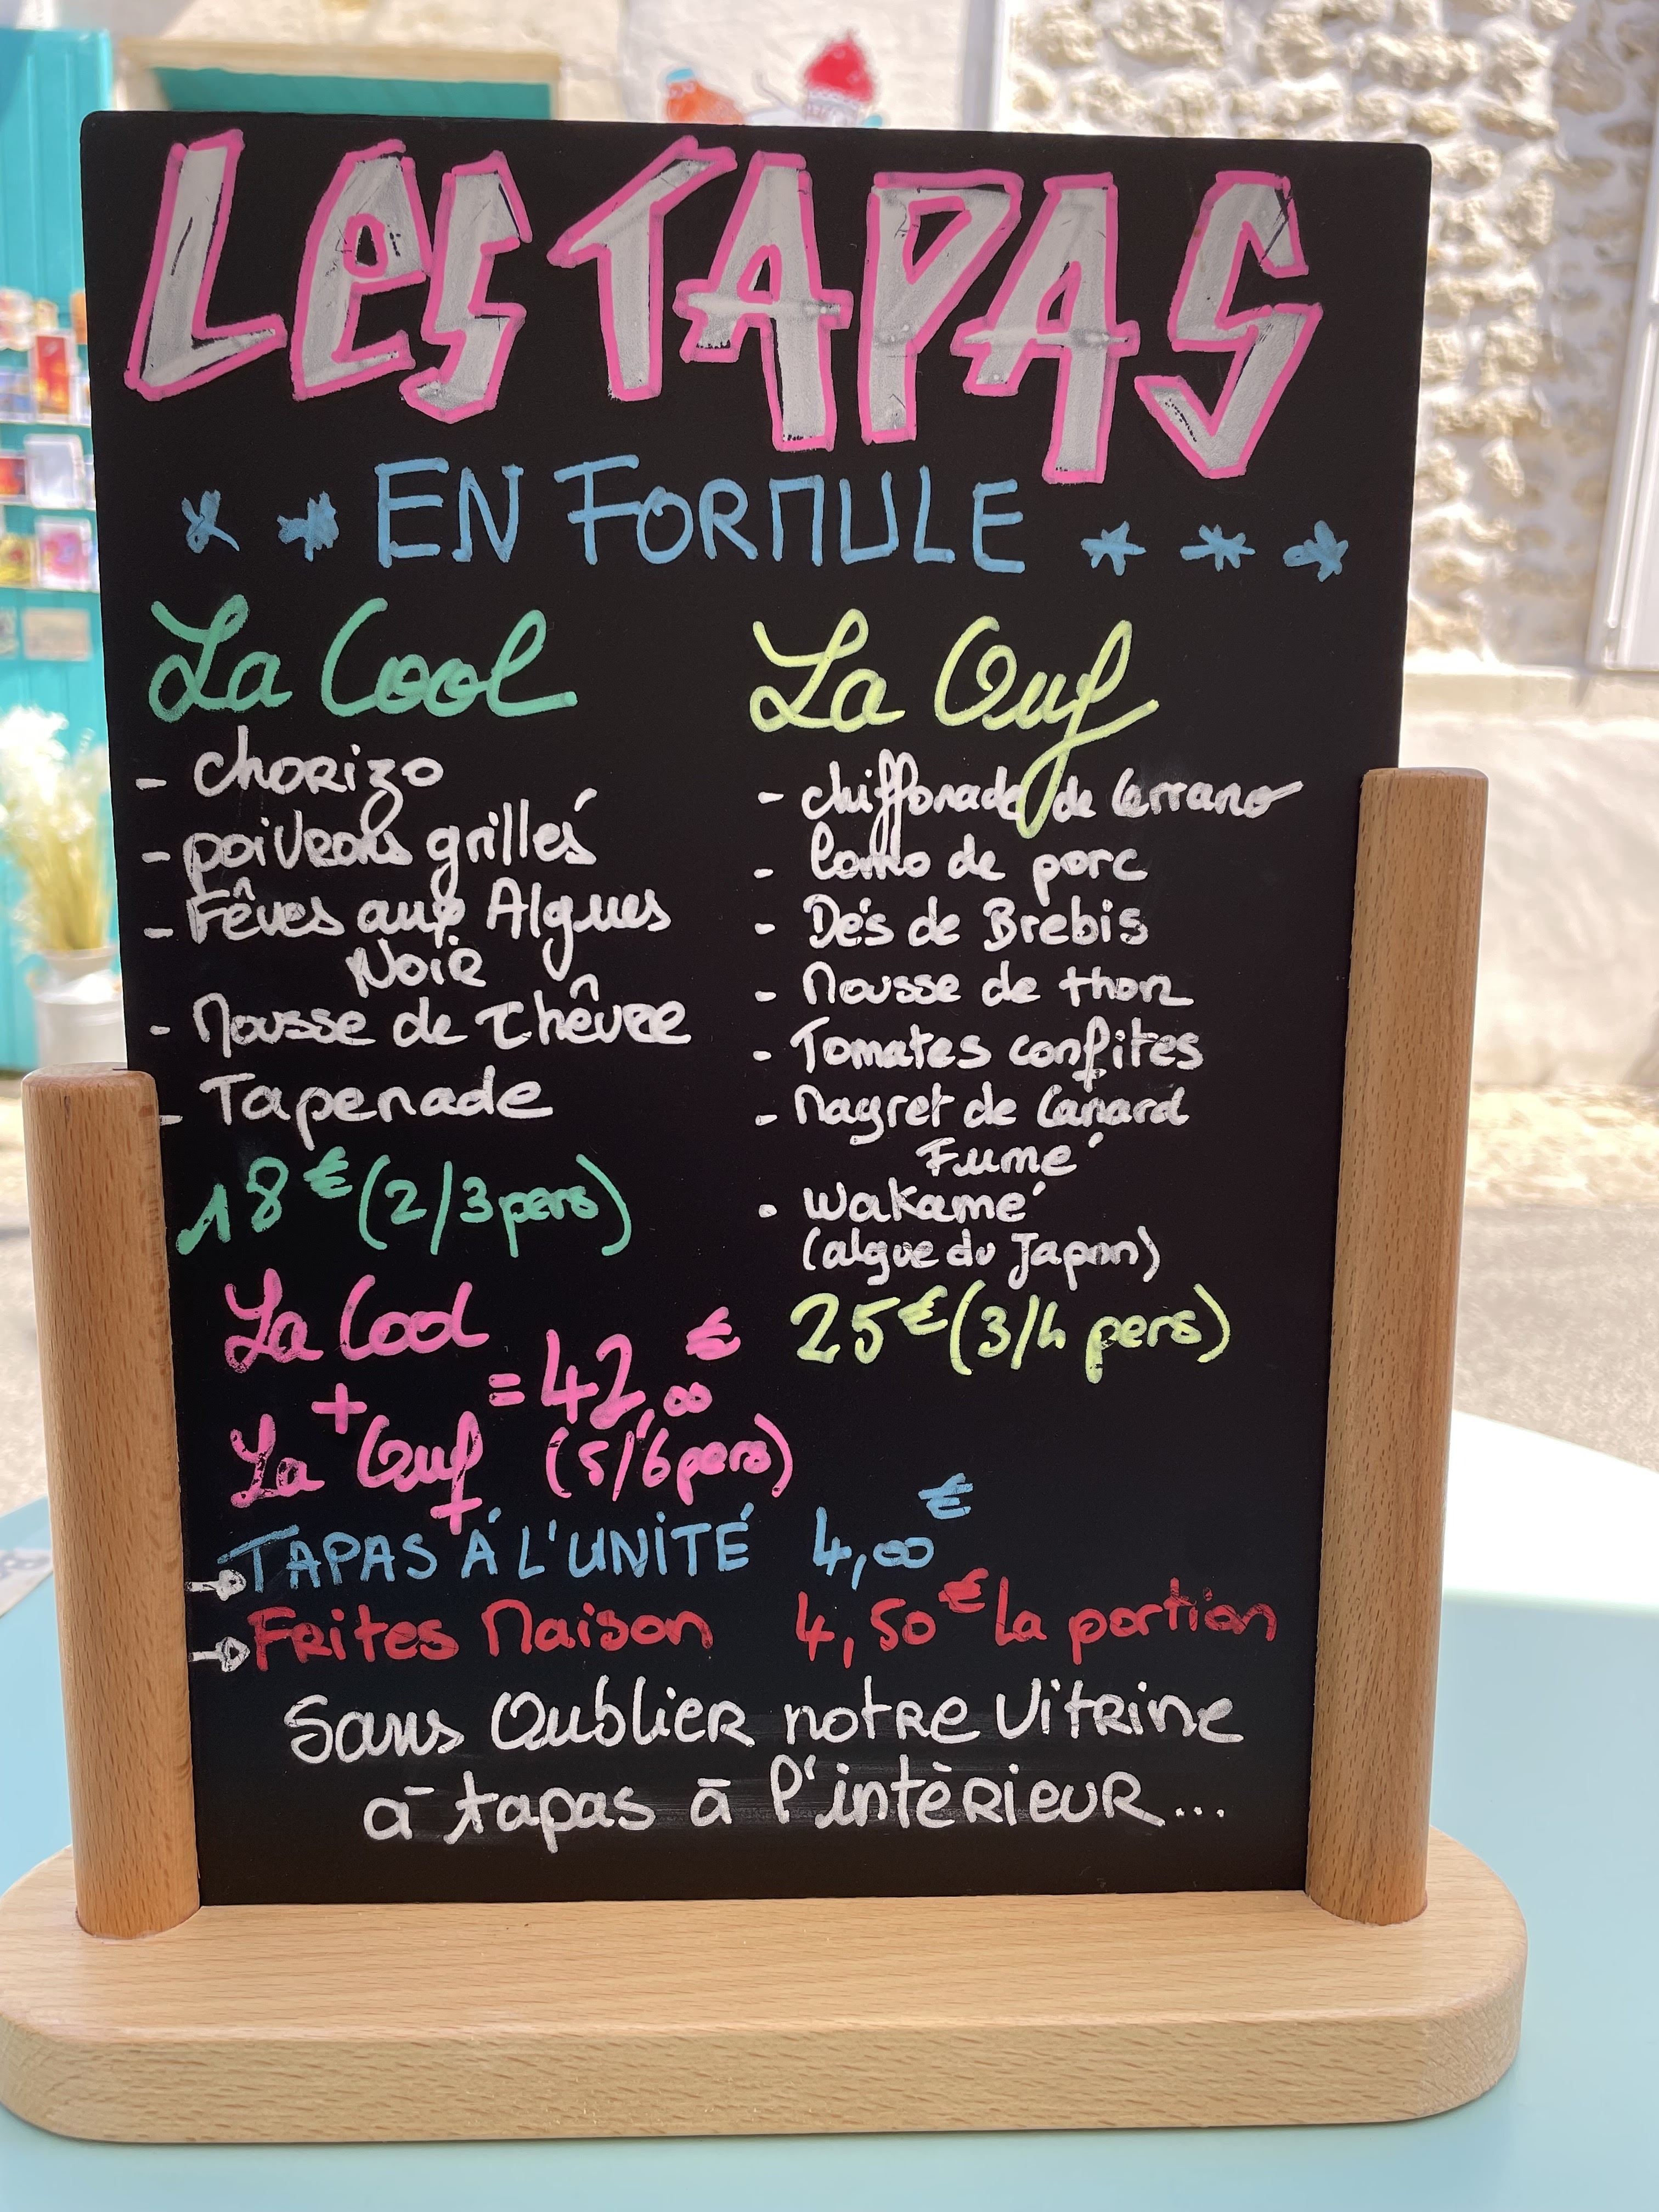 LES TAPAS
* * EN FORMULE * * *
La Cool
- Chorizo
- poivrons grillés
- Fêves aux Algues
Noir
- Mousse de Chêvre
- Tapenade
18€ (2/3 pers)
La Ouf
- chiffonade de Serrano
- Lomo de porc
- Dés de Brebis
- Mousse de thon
- Tomates confites
- Magret de Canard
Fumé
- Wakamé
(algue du Japon)
25€ (3/4 pers)
La Cool
+
La Ouf
= 42,00€
(5/6 pers)
+
TAPAS À L'UNITÉ 4,00€
Frites Maison 4,50€ La portion
Sans Oublier notre Vitrine
à tapas à l'intèrieur...